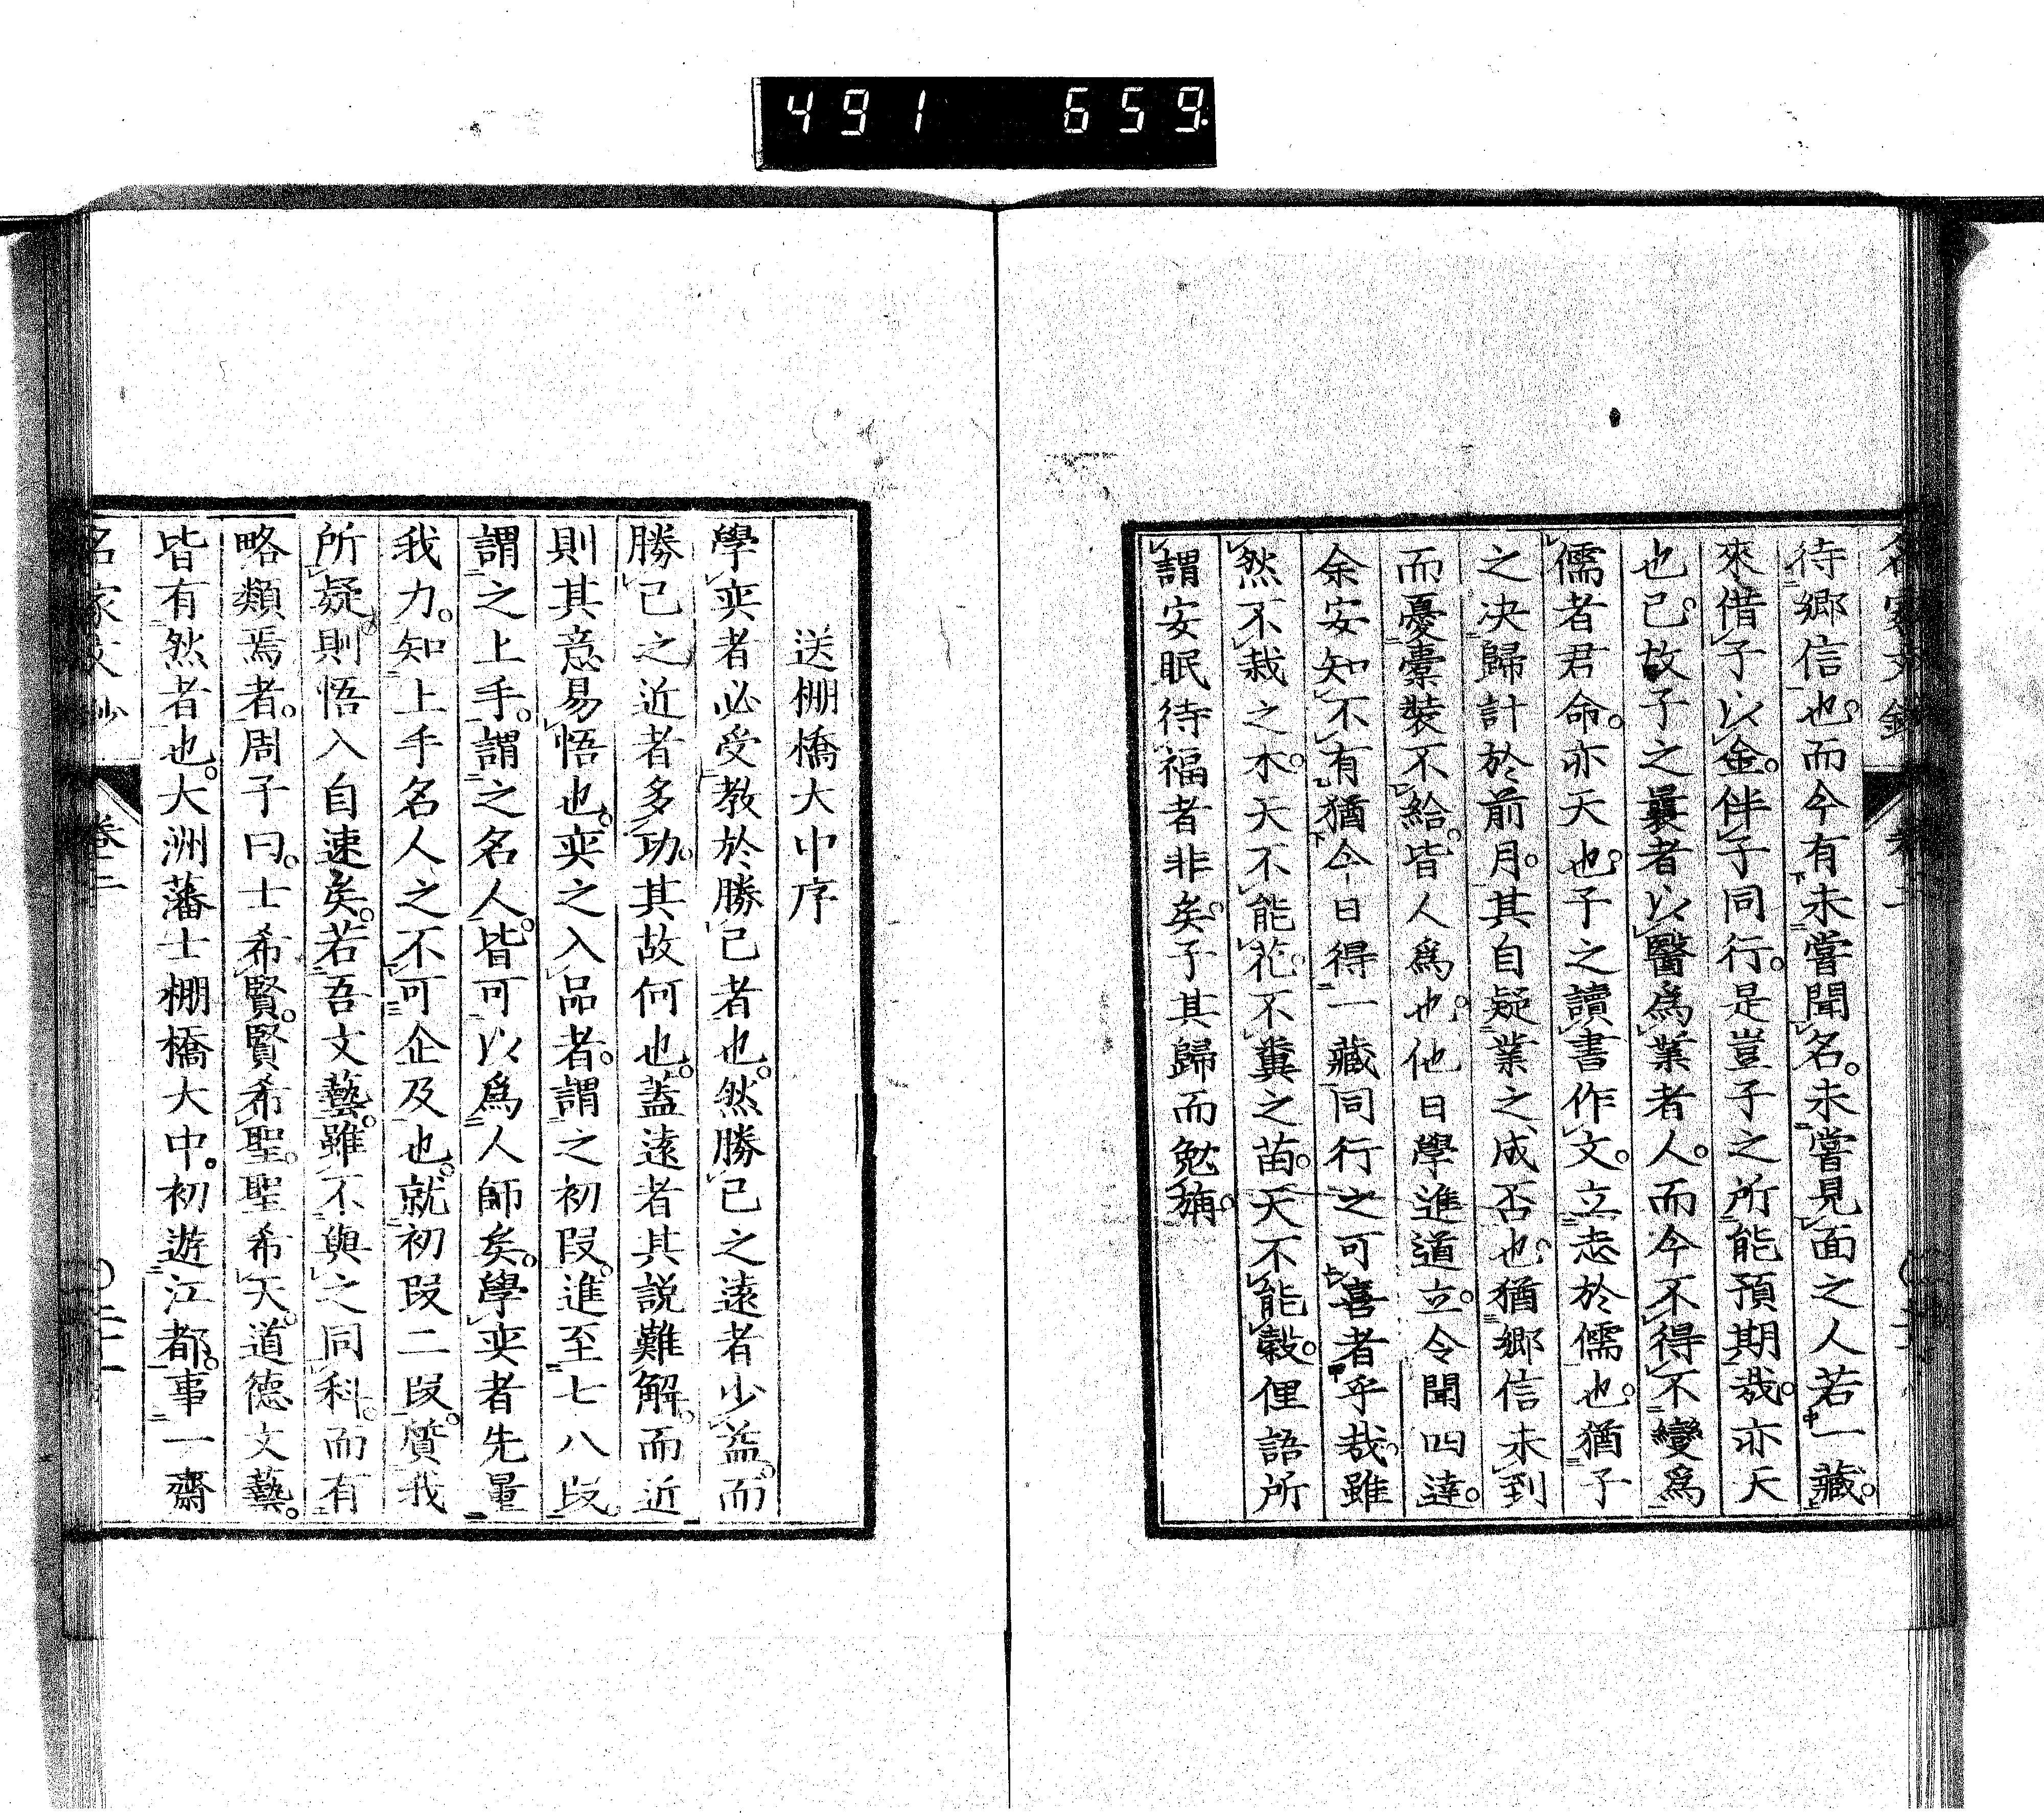 491 659
待鄉信也。而今有未嘗聞名。未嘗見面之人若一藏。
來借子以金。伴子同行。是豈子之所能預期哉。亦天
也已。故子之曩者以醫爲業者人。而今不得不變爲
儒者君命。亦天也。子之讀書作文。立志於儒也。猶子
之决歸計於前月。其自疑業之成否也。猶鄉信未到
而憂橐裝不給。皆人爲也。他日學進道立。令聞四達。
余安知不有猶今日得一藏同行之可喜者乎哉。雖
然不栽之木。天不能花。不糞之苗。天不能穀。俚語所
謂安眠待福者非矣。子其歸而勉旃。
送棚橋大中序
學奕者必受教於勝己者也。然勝己之遠者少益。而
勝己之近者多功。其故何也。蓋遠者其説難解。而近
則其意易悟也。奕之入品者。謂之初段。進至七八段
謂之上手。謂之名人。皆可以爲人師矣。學奕者先量
我力。知上手名人之不可企及也。就初段二段。質我
所疑則悟入自速矣。若吾文藝。雖不與之同科。而有
略類焉者。周子曰。士希賢。賢希聖。聖希天。道德文藝。
皆有然者也。大洲藩士棚橋大中。初遊江都。事一齋
名家文抄 卷二